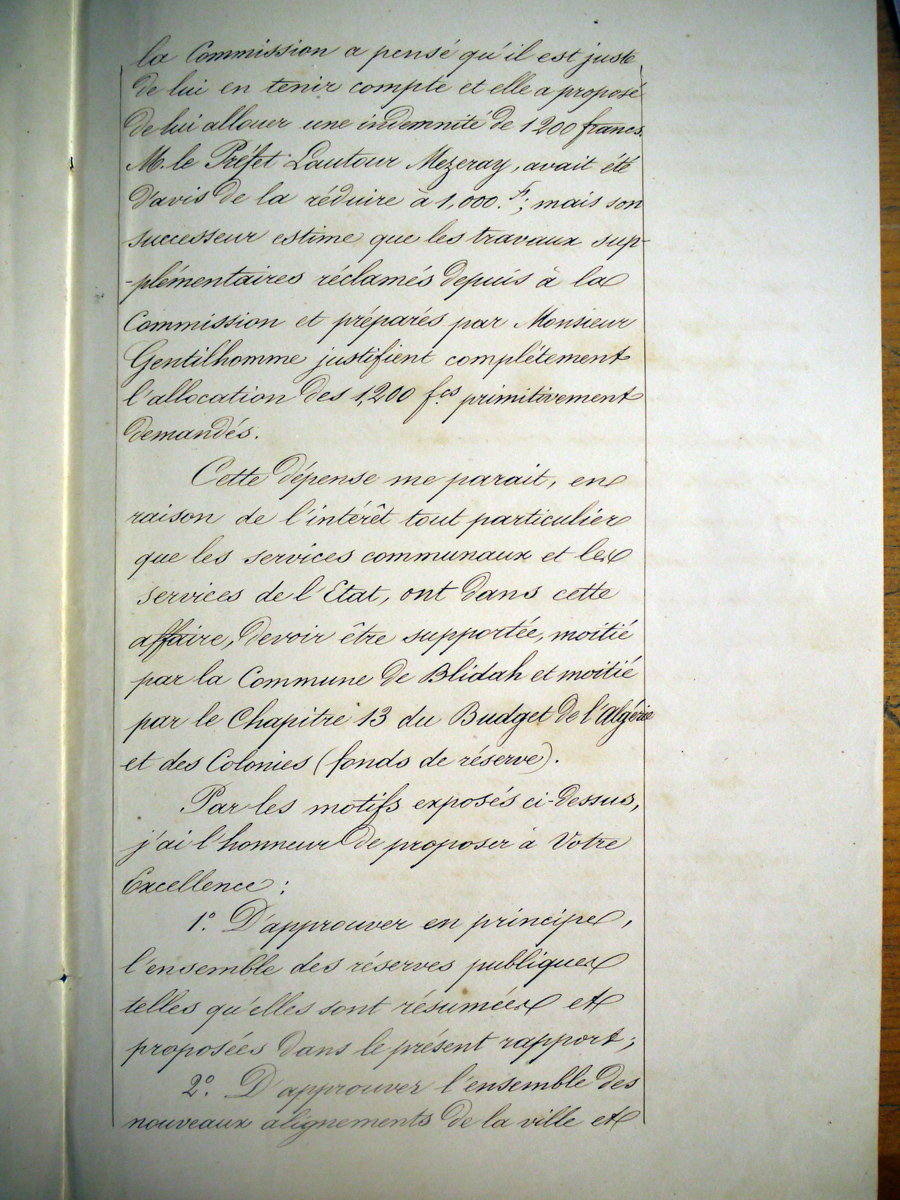 la Commission a pensé qu'il est juste
de lui en tenir compte et elle a proposé
de lui allouer une indemnité de 1200 francs.
M. le Préfet Lautour Mezeray, avait été
d'avis de la réduire à 1,000 f; mais son
successeur estime que les travaux sup-
-plémentaires réclamés depuis à la
Commission et préparés par Monsieur
Gentilhomme justifient complètement
l'allocation des 1,200 f.cs primitivement
demandés.
Cette dépense me parait, en
raison de l'intérêt tout particulier
que les services communaux et les
services de l'Etat, ont dans cette
affaire, devoir être supportée, moitié
par la Commune de Blidah et moitié
par le Chapitre 13 du Budget de l'Algérie
et des Colonies (fonds de réserve).
Par les motifs exposés ci-dessus,
j'ai l'honneur de proposer à Votre
Excellence :
1º. D'approuver en principe,
l'ensemble des réserves publiques
telles qu'elles sont résumées et
proposées dans le présent rapport;
2º. D'approuver l'ensemble des
nouveaux alignements de la ville et